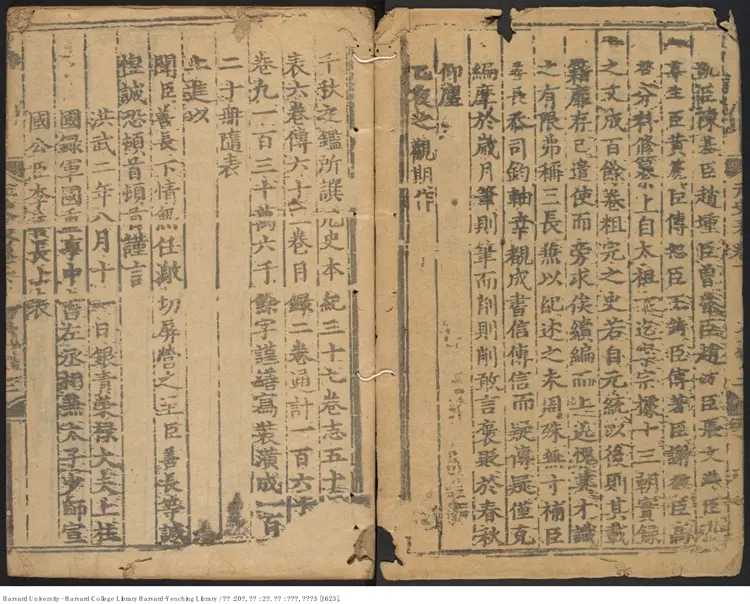 凱臣陳基臣趙壎臣曾魯臣趙汸臣張文海臣徐
尊生臣黃篪臣傅恕臣王錡臣傅著臣謝徽臣高
啓分科修纂上自太祖下迄寧宗據十三朝實錄
之文成百餘卷粗完之史若自元統以後則其載
籍靡存已遣使而旁求俟續編而上送愧其才識
之有限弗稱三長兼以紀述之未周殊無寸補臣
善長忝司鈞軸幸覩成書信傳信而疑傳疑僅克
編摩於歲月筆則筆而削則削敢言褒貶於春秋
仰塵
乙夜之觀期作
千秋之鑑所譔元史本紀三十七卷志五十三
表六卷傳六十三卷目錄二卷通計一百六十一
卷凡一百三十萬六千餘字謹繕寫裝潢成一百
二十冊隨表
上進以
聞臣善長下情無任激切屏營之至臣善長等誠
惶誠恐頓首頓首謹言
洪武二年八月十一日銀青榮祿大夫上柱
國錄軍國重事中書左丞相兼太子少師宣
國公臣李善長上表
Harvard University - Harvard College Library Harvard-Yenching Library / ?? :20?, ?? : 2?, ?? : ???, ???3 [1623].